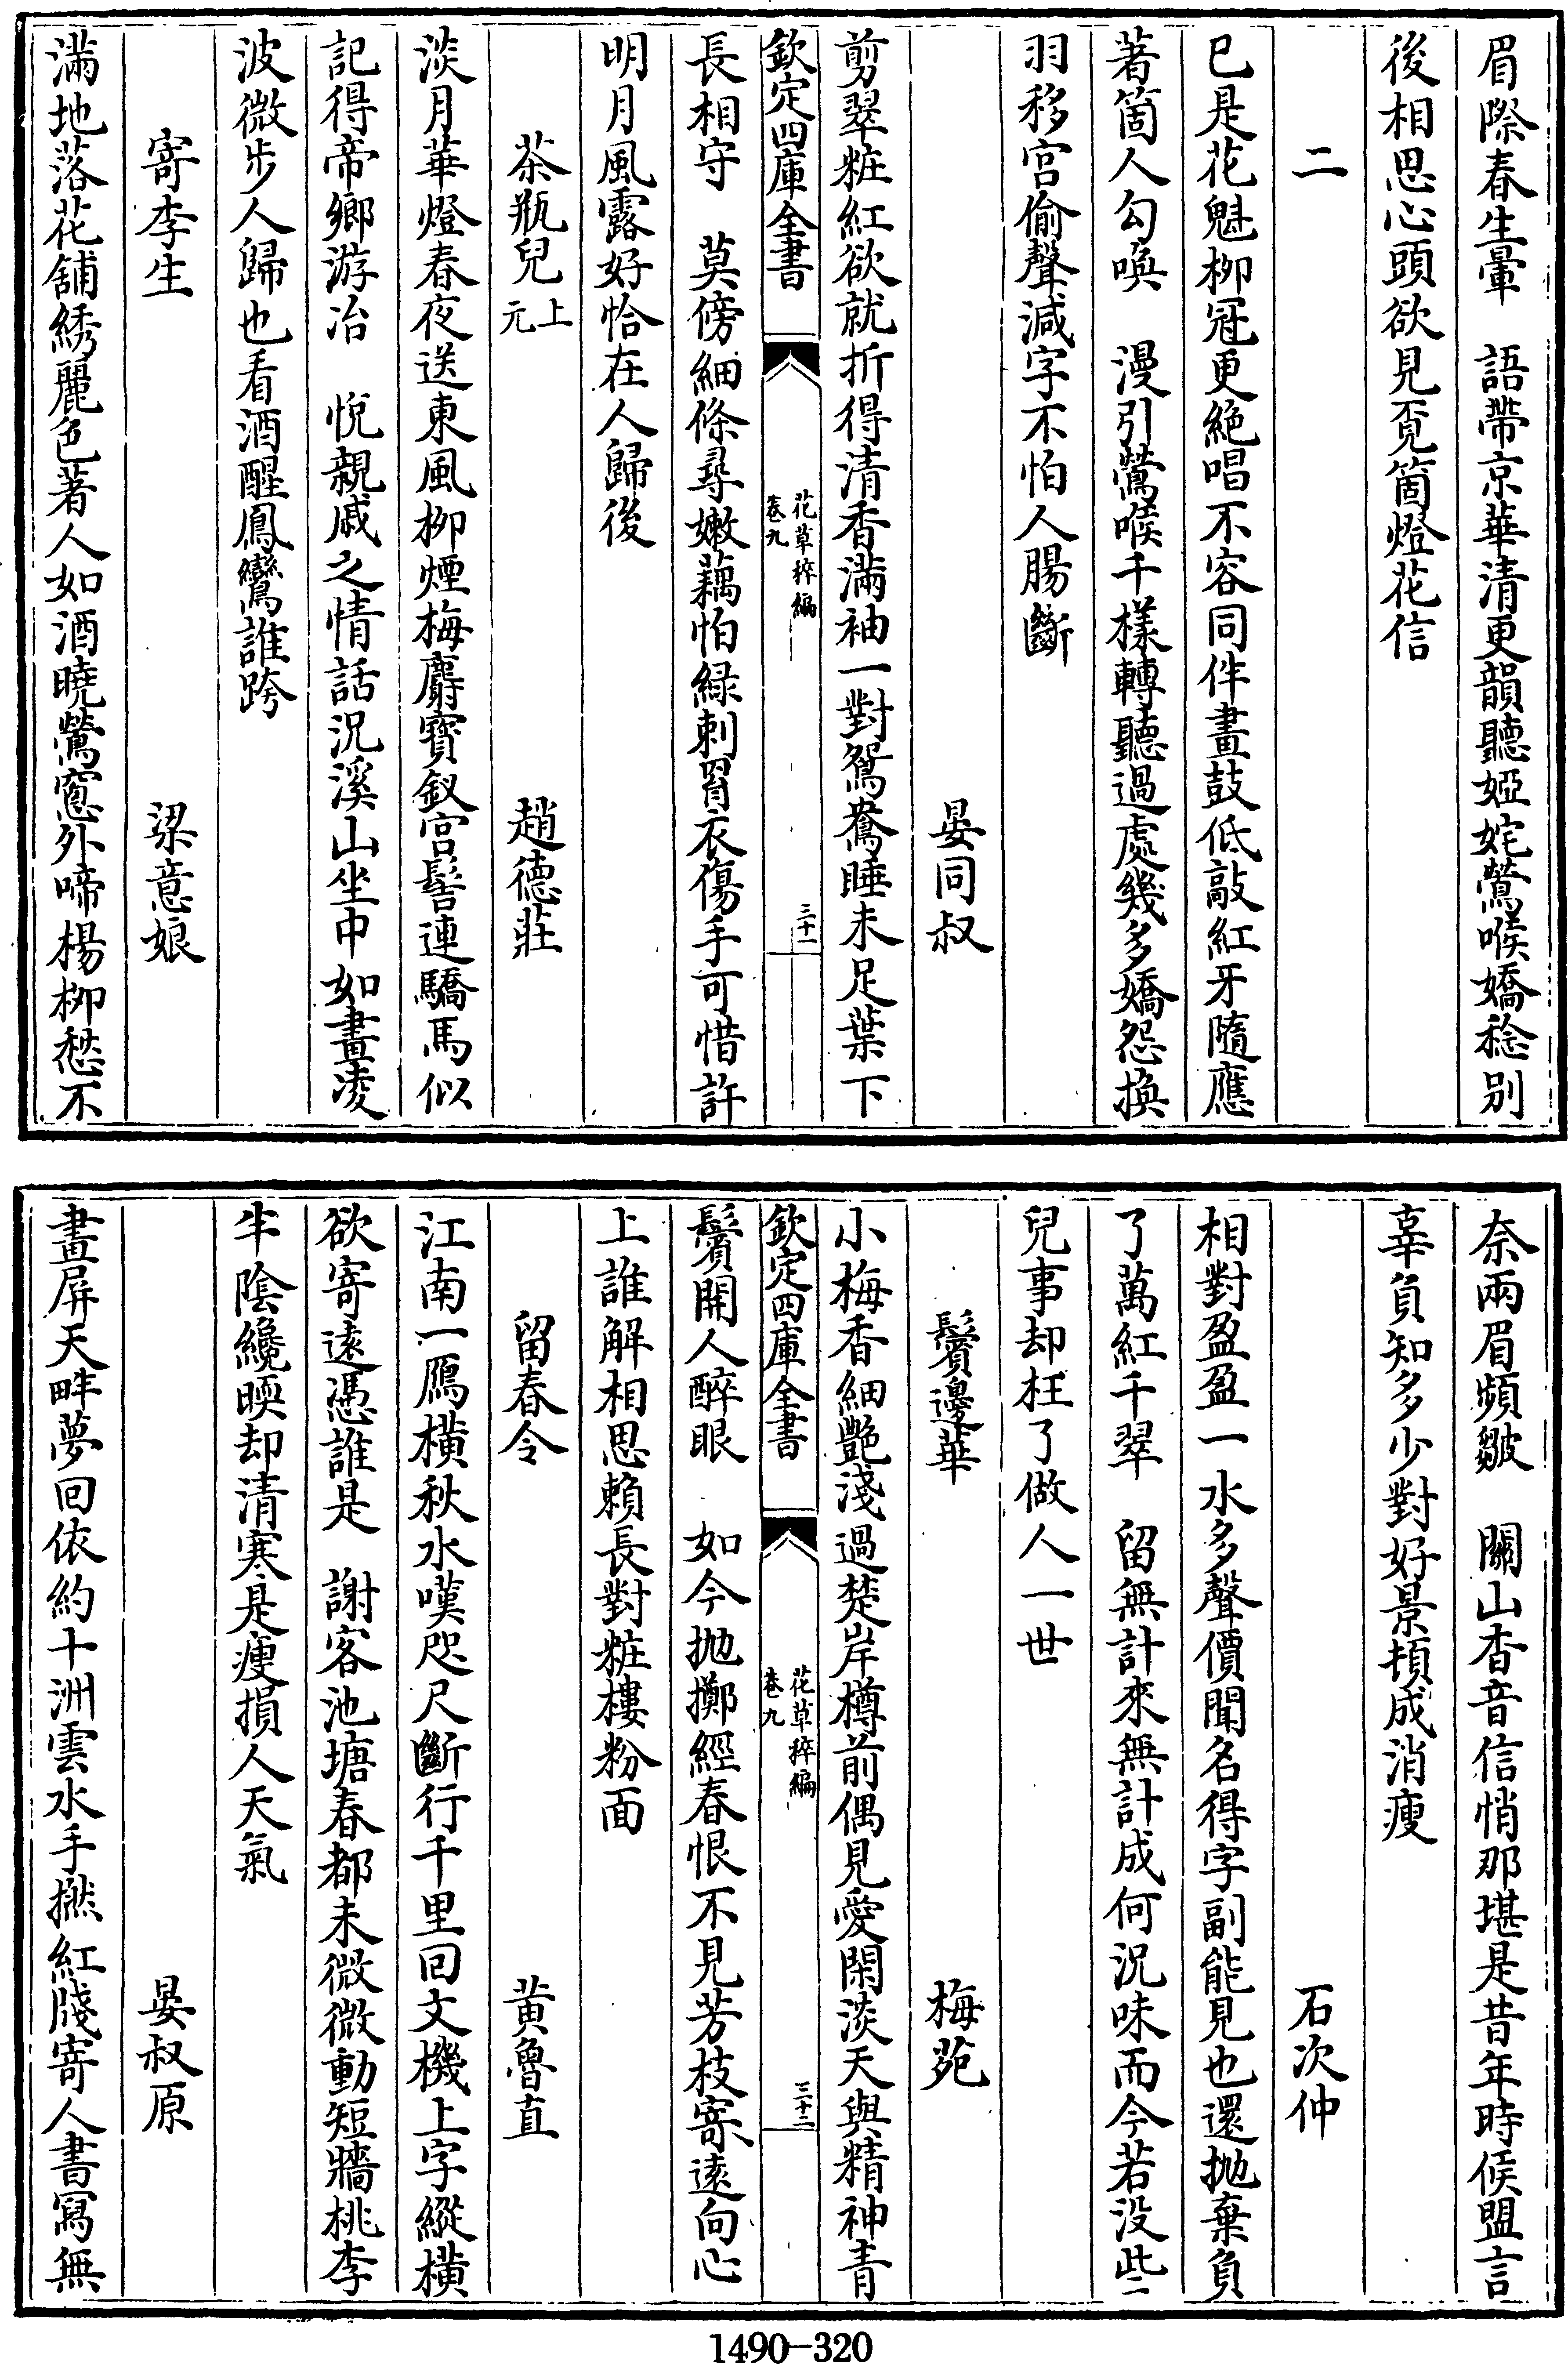 眉際春生暈　語帶京華清更韻聽婭姹鶯喉嬌稔别
後相思心頭欲見覔箇燈花信
二
已是花魁柳冠更絶唱不容同伴畫鼓低敲紅牙隨應
著箇人勾喚　漫引鶯喉千樣轉聽過處幾多嬌怨換
羽移宫偷聲減字不怕人腸斷
晏同叔
剪翠粧紅欲就折得清香滿袖一對鴛鴦睡未足葉下
欽定四庫全書
花草稡編
卷九
三十一
長相守　莫傍細條尋嫩藕怕緑刺罥衣傷手可惜許
明月風露好恰在人歸後
茶瓶兒上元　趙德莊
淡月華燈春夜送東風柳煙梅麝寳釵宫髻連驕馬似
記得帝鄉游冶　悅親戚之情話況溪山坐中如畫凌
波微步人歸也看酒醒鳳鸞誰跨
寄李生　梁意娘
滿地落花鋪綉麗色著人如酒曉鶯窻外啼楊柳愁不
奈兩眉頻皺　關山杳音信悄那堪是昔年時候盟言
辜負知多少對好景頓成消瘦
石次仲
相對盈盈一水多聲價聞名得字副能見也還抛棄負
了萬紅千翠　留無計來無計成何況味而今若没些
兒事却枉了做人一世
鬢邊華　梅苑
小梅香細艶淺過楚岸樽前偶見愛閑淡天與精神青
欽定四庫全書
花草稡編
卷九
三十二
鬢開人醉眼　如今抛擲經春恨不見芳枝寄遠向心
上誰解相思賴長對粧樓粉面
留春令　黄魯直
江南一鴈横秋水嘆咫尺斷行千里回文機上字縱横
欲寄遠憑誰是　謝客池塘春都未微微動短牆桃李
半陰纔暎却清寒是瘦損人天氣
晏叔原
畫屏天畔夢回依約十洲雲水手撚紅牋寄人書寫無
1490—320